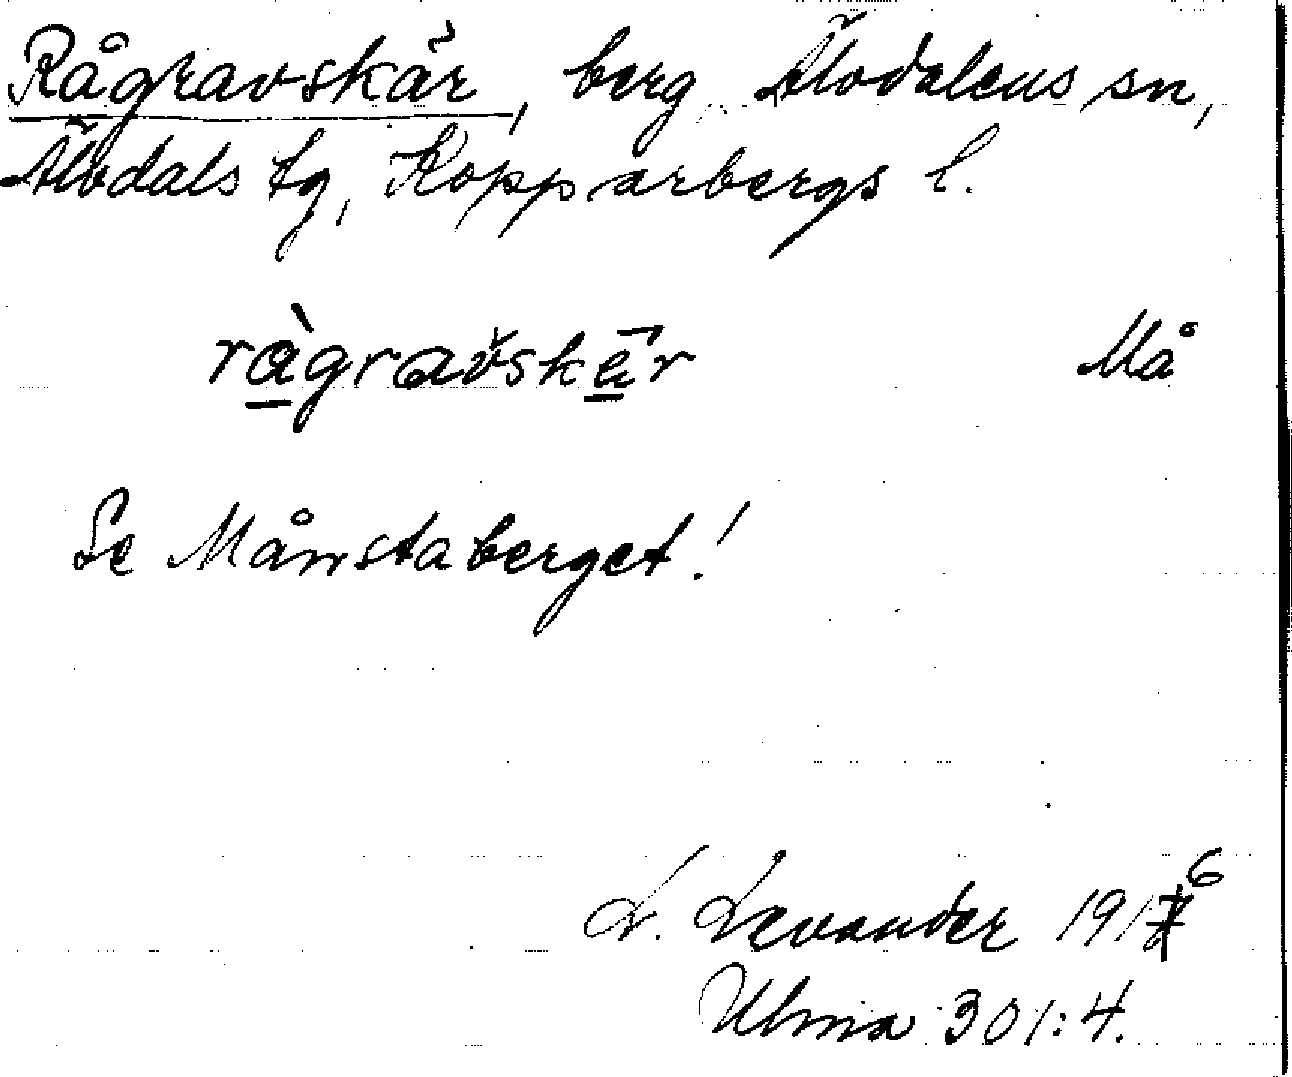 Rågravskär, berg Älvdalens sn,
Älvdals tg, Kopparbergs l.
ràgravskär Må
Se Månstaberget!
L. Levander 1916
Ulma 301:4.